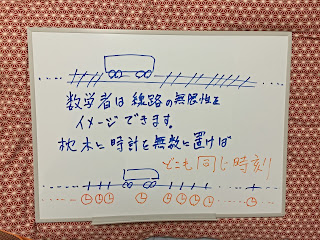 数学者は線路の無限性を
イメージできます。
枕木に時計を無数に置けば
どこも同じ時刻